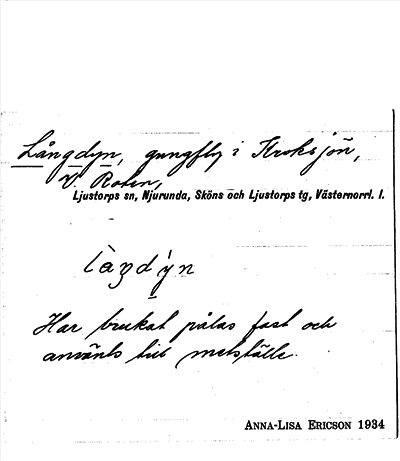 Långdyn, gungfly i Kroksjön,
V. Roten,
Ljustorps sn, Njurunda, Sköns och Ljustorps tg, Västernorrl. l.
Har brukat pålas fast och
använts till metställe.
ANNA-LISA ERICSON 1934